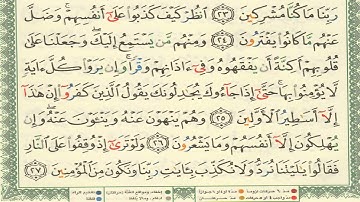 رَبِّنَا مَا كُنَّا مُشْرِكِينَ ٢٣ ٱنظُرْ كَيْفَ كَذَبُوا۟ عَلَىٰٓ أَنفُسِهِمْ ۚ وَضَلَّ
عَنْهُم مَّا كَانُوا۟ يَفْتَرُونَ ٢٤ وَمِنْهُم مَّن يَسْتَمِعُ إِلَيْكَ ۖ وَجَعَلْنَا عَلَىٰ
قُلُوبِهِمْ أَكِنَّةً أَن يَفْقَهُوهُ وَفِىٓ ءَاذَانِهِمْ وَقْرًا ۚ وَإِن يَرَوْا۟ كُلَّ ءَايَةٍ
لَّا يُؤْمِنُوا۟ بِهَا ۚ حَتَّىٰٓ إِذَا جَآءُوكَ يُجَٰدِلُونَكَ يَقُولُ ٱلَّذِينَ كَفَرُوٓا۟ إِنْ هَٰذَآ
إِلَّآ أَسَٰطِيرُ ٱلْأَوَّلِينَ ٢٥ وَهُمْ يَنْهَوْنَ عَنْهُ وَيَنْـَٔوْنَ عَنْهُ ۖ وَإِن
يُهْلِكُونَ إِلَّآ أَنفُسَهُمْ وَمَا يَشْعُرُونَ ٢٦ وَلَوْ تَرَىٰٓ إِذْ وُقِفُوا۟ عَلَى ٱلنَّارِ
فَقَالُوا۟ يَٰلَيْتَنَا نُرَدُّ وَلَا نُكَذِّبَ بِـَٔايَٰتِ رَبِّنَا وَنَكُونَ مِنَ ٱلْمُؤْمِنِينَ ٢٧